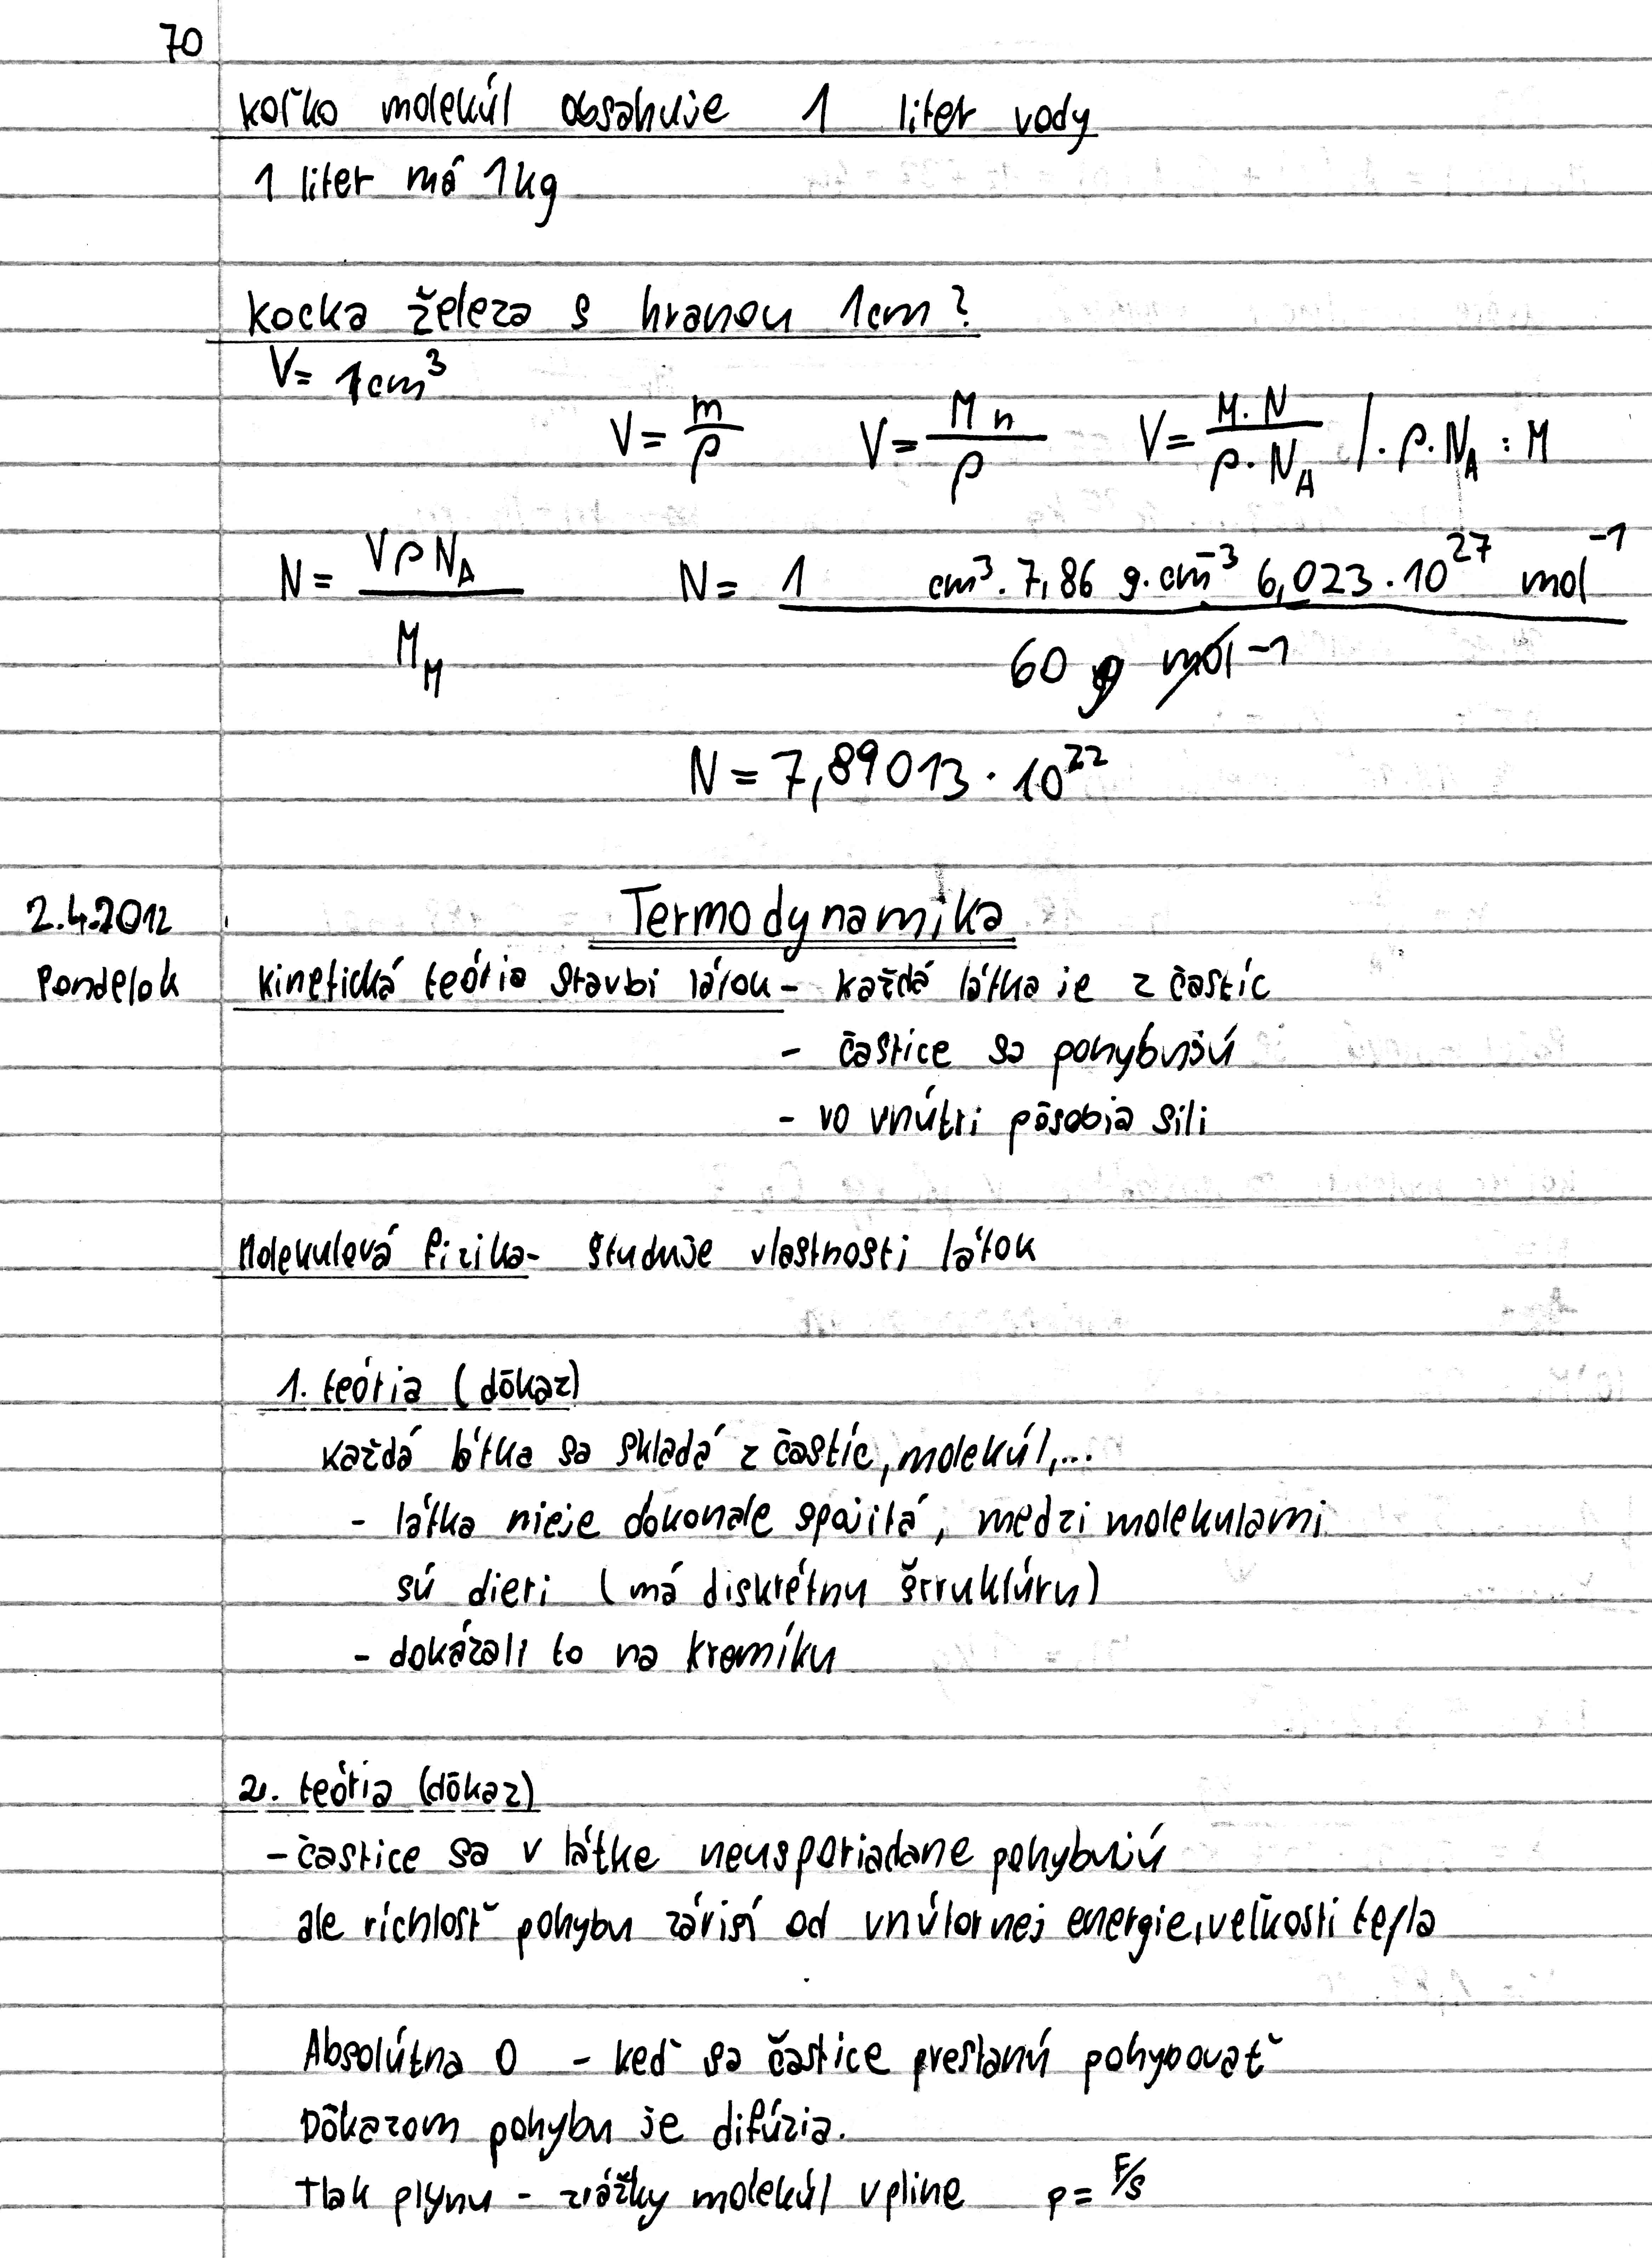 70
koľko molekúl obsahuje 1 liter vody
1 liter má 1kg
kocka železa s hranou 1cm?
V= 1cm³
V= m/ρ V= M n/ρ V= M.N/ρ.N_A /.ρ.N_A : M
N= VρN_A/M_M N= 1 cm³.7,86 g.cm⁻³ 6,023.10²⁷ mol⁻¹/60 g mol⁻¹
N = 7,89013 . 10²²
2.4.2012 Termodynamika
Pondelok kinetická teória stavbi látok - každá látka je z častíc
- častice sa pohybujú
- vo vnútri pôsobia sili
Molekulová fizika - študuje vlastnosti látok
1. teória (dôkaz)
každá látka sa skladá z častíc, molekúl,...
- látka nieje dokonale spojitá, medzi molekulami
sú dieri (má diskrétnu štruktúru)
- dokázali to na kremíku
2. teória (dôkaz)
- častice sa v látke neusporiadane pohybujú
ale ríchlosť pohybu závisí od vnútornej energie, veľkosti tepla
Absolútna 0 - keď sa častice prestanú pohybovať
Dôkazom pohybu je difúzia.
Tlak plynu - zrážky molekúl v pline p= F/S